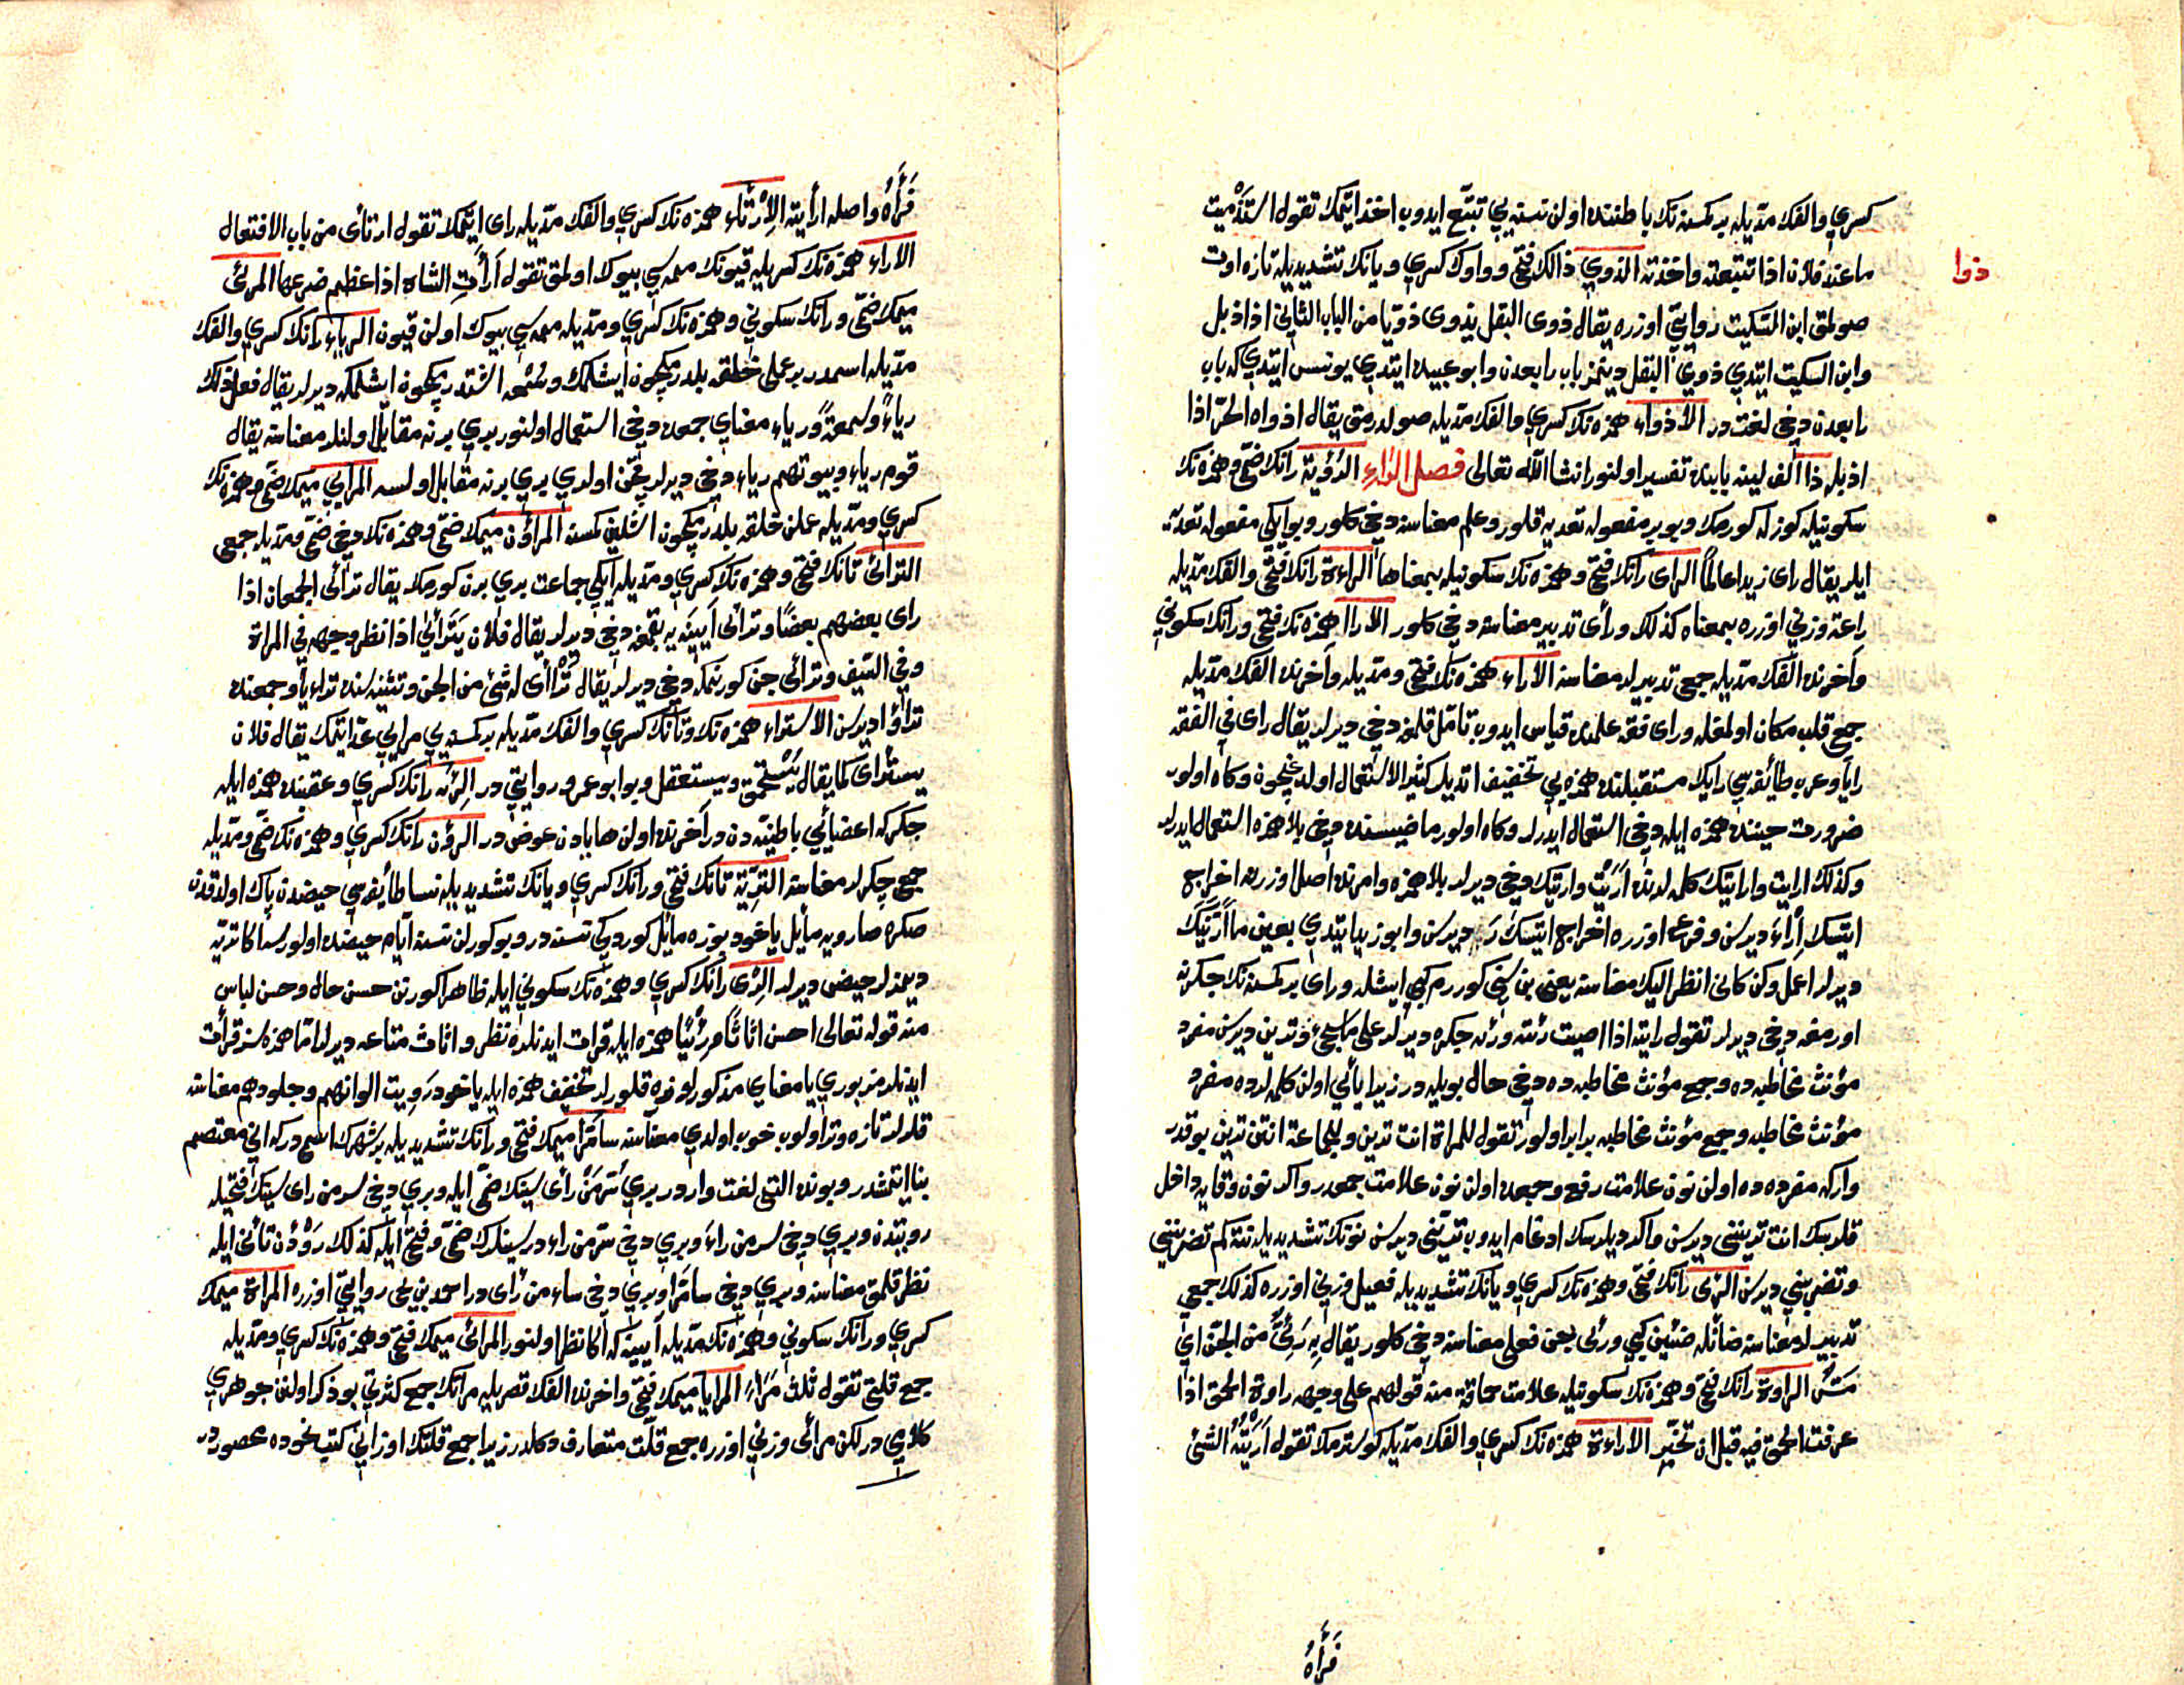 كسري والفك مدّيله بر كمسنه نك باطننده اولن نسنه يي تتبّع ايدوب اخذ ايتمك تقول استذميت
ذوا
ما عند فلان اذا تتبعته واخذته الذوي ذالك فتحي وواوك كسري ويانك تشديديله تازه اوت
صولمق ابن السكيت روايتي اوزره يقال ذوى البقل يذوى ذويّا من الباب الثاني اذا ذبل
وابن السكيت ايتدي ذوي البقل دينمز باب رابعدن وابو عبيده ايتدي يونس ايتدي كه باب
رابعدن دخي لغت در الاذواء همزه نك كسري والفك مدّيله صولدرمق يقال اذواه الحرّ اذا
اذبله ذا الف لينه بابنده تفسير اولنور انشا الله تعالى فصل الراء الرؤية رانك ضمّي وهمزه نك
سكونيله كوزله كورمك وبو بر مفعوله تعديه قلور وعلم معناسنه دخي كلور وبو ايكي مفعوله تعديه
ايلر يقال راى زيدا عالماً الراى رانك فتحي وهمزه نك سكونيله بمعناها الراءة رانك فتحي والفك مدّيله
راعة وزني اوزره بمعناه كذلك ورأى تدبير معناسنه دخي كلور الارا همزه نك فتحي ورانك سكوني
وآخرنده الفك مدّيله جمع تدبيرلر معناسنه الآراء همزه نك فتحي ومدّيله وآخرنده الفك مدّيله
جمع قلب مكان اولمغله وراى فقه علمنده قياس ايدوب تامّل قلمغه دخي ديرلر يقال راى في الفقه
راياً وعرب طائفه سي رايك مستقبلنده همزه يي تخفيف اتديلر كثير الاستعمال اولديغيچون وكاه اولور
ضرورت حيننده همزه ايله دخي استعمال ايدرلر وكاه اولور ماضيسنده دخي بلا همزه استعمال ايدرلر
وكذلك ارايت وارايتك كلمه لرنده اريت واريتك دخي ديرلر بلا همزه وامرنده اصل اوزره اخراج
ايتسك إراء ديرسن وفرعى اوزره اخراج ايتسك رَ ديرسن وابو زيد ايتدي بعين ما اَرَيَنَّك
ديرلر اعمل وكن كاني انظر اليك معناسنه يعني بن سني كوررم كبي ايشله وراى بر كمسنه نك جكرنه
اورمغه دخي ديرلر تقول رايته اذا اصبت رئته ورئه جكره ديرلر على ما سيجيء وترين ديرسن مفرد
مؤنث مخاطبه ده وجمع مؤنث مخاطبه ده دخي حال بويله در زيرا يائي اولن كلمه لرده مفرد
مؤنث مخاطبه وجمع مؤنث مخاطبه برابر اولور تقول للمراة انت ترين وللجماعة انتن ترين بو قدر
واركه مفرده ده اولن نون علامت رفع وجمعده اولن نون علامت جمعدر واكر نون وقايه داخل
قلرسك انت ترينني ديرسن واكر ديلرسك ادغام ايدوب ترينّي ديرسن نونك تشديديله نته كم تضربينني
وتضربيني ديرسن الرئى رانك فتحي وهمزه نك كسري ويانك تشديديله فعيل وزني اوزره كذلك جمعي
تدبيرلر معناسنه ضائله ضئين كبي ورئى يعني فعلى معناسنه دخي كلور يقال به رَئِيٌّ من الجنّ اي
مسّ الراوة رانك فتحي وهمزه نك سكونيله علامت حماقة منه قولهم على وجهه راوة الحمق اذا
عرفت الحمق فيه قبل ان تخبّر الاراءة همزه نك كسري والفك مدّيله كوسترمك تقول اَرَيْتُهُ الشئ
فَرَأَهُ
فَرَأَهُ واصله ارأيته الارتئاء همزه نك كسري والفك مدّيله راى ايتمك تقول ارتأى من باب الافتعال
الاراء همزه نك كسريله قيونك ممه سي بيوك اولمق تقول اَرأَتِ الشاة اذا عظم ضرعها المرئى
ميمك ضمّي ورانك سكوني وهمزه نك كسري ومدّيله ممه سي بيوك اولن قيون الرياء رانك كسري والفك
مدّيله اسمدر بر عملى خلقه بلدرمكچون ايشلمك وسُمعه اشتدرمكچون ايشلمكه ديرلر يقال فعل ذلك
رياءً وسمعةً ورياء معناي جمعده دخي استعمال اولنور بري برنه مقابل اولنلر معناسنه يقال
قوم رياء وبيوتهم رياء دخي ديرلر يعني اولدي بري برنه مقابل اولسه المرائي ميمك ضمّي وهمزه نك
كسري ومدّيله عملن خلقه بلدرمكچون اشلين كمسنه المراؤن ميمك ضمّي وهمزه نك دخي ضمّي ومدّيله جمعي
الترائى تانك فتحي وهمزه نك كسري ومدّيله ايكي جماعت بري برن كورمك يقال ترائى الجمعان اذا
راى بعضهم بعضاً وترائى آيينه يه بقمغه دخي ديرلر يقال فلان يَتَرأَى اذا نظر وجهه في المراة
وفي السّيف وترائى جن كورنمكه دخي ديرلر يقال تراأى له شئ من الجن وتثنيه سنده تراءيا وجمعنده
تراؤا ديرسن الاستراء همزه نك وتانك كسري والفك مدّيله بر كمسنه يي مرايي عدّ ايتمك يقال فلان
يسترأى كما يقال يُستحمق ويستعقل وبو ابو عمرو روايتي در الرئه رانك كسري وعقبنده همزه ايله
جكر كه اعضائي باطنيّه دن در آخرنده اولن ها يادن عوض در الرؤن رانك كسري وهمزه نك ضمّي ومدّيله
جمع جكرلر معناسنه التريّة تانك فتحي ورانك كسري ويانك تشديديله نسا طائفه سي حيضدن پاك اولدقدن
صكره صارويه مايل ياخود بوزه مايل كوردكي نسنه در وبو كورلن نسنه ايّام حيضده اولورسه اكا تريّه
ديمزلر حيض ديرلر الرّئى رانك كسري وهمزه نك سكوني ايله ظاهرا كورنن حسن حال وحسن لباس
منه قوله تعالى احسن اثاثاً ورِئْيًا همزه ايله قرات ايدنلرده نظر واثاث متاعه ديرلر امّا همزه سز قرأت
ايدنلر مزبوري يا معناي مذكور اوزره قلورلر تخفيف همزه ايله ياخود رَويت الوانهم وجلودهم معناسنه
قلرلر تازه وتر اولوب خوب اولدي معناسنه سامرّا ميمك فتحي ورانك تشديديله بر شهرك اسمي در كه اني معتصم
بنا ايتمشدر وبونده التي لغت واردر بري سُرَّ مَنْ رأى سينك ضمّي ايله وبري دخي سر من راى سينك فتحيله
روبتدن وبري دخي سر من راء وبري دخي سّر من راء در سينك ضمّي وفتحي ايله كذلك رؤدن تأني ايله
نظر قلمق معناسنه وبري دخي سامرّا وبري دخي ساء من رأى در احمد بن يحيى روايتي اوزره المراة ميمك
كسري ورانك سكوني وهمزه نك مدّيله آيينه كه اكا نظر اولنور المرائى ميمك فتحي وهمزه نك كسري ومدّيله
جمع قلّتي تقول ثلث مَراءٍ المرايا ميمك فتحي واخرنده الفك قصريله مراتك جمع كثرتي بو ذكر اولنن جوهري
كلامي در لكن مرائى وزني اوزره جمع قلّت متعارف دكلدر زيرا جمع قلّتك اوزاني كتب نحوده محصوردر